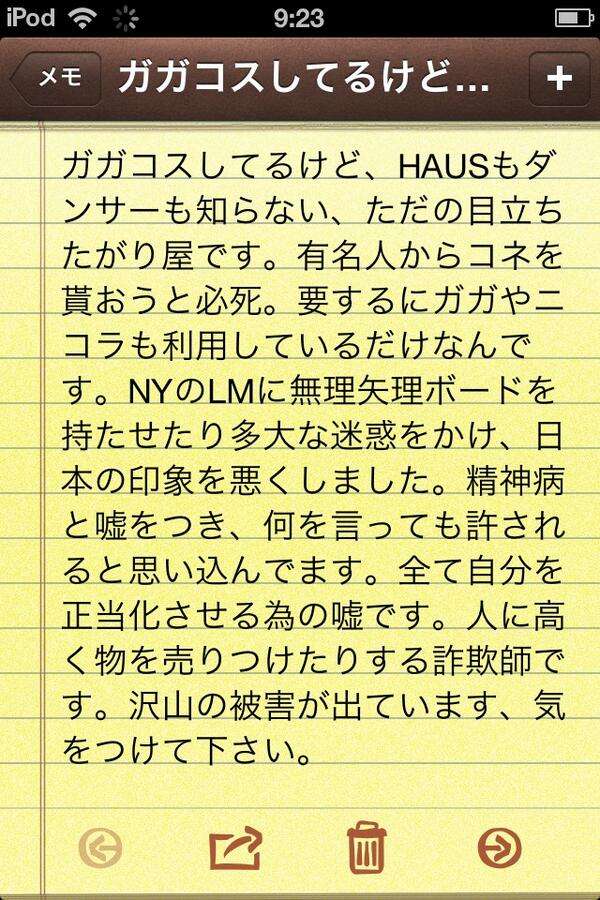 iPod 9:23
メモ ガガコスしてるけど... +
ガガコスしてるけど、HAUSもダ
ンサーも知らない、ただの目立ち
たがり屋です。有名人からコネを
貰おうと必死。要するにガガやニ
コラも利用しているだけなんで
す。NYのLMに無理矢理ボードを
持たせたり多大な迷惑をかけ、日
本の印象を悪くしました。精神病
と嘘をつき、何を言っても許され
ると思い込んでます。全て自分を
正当化させる為の嘘です。人に高
く物を売りつけたりする詐欺師で
す。沢山の被害が出ています、気
をつけて下さい。